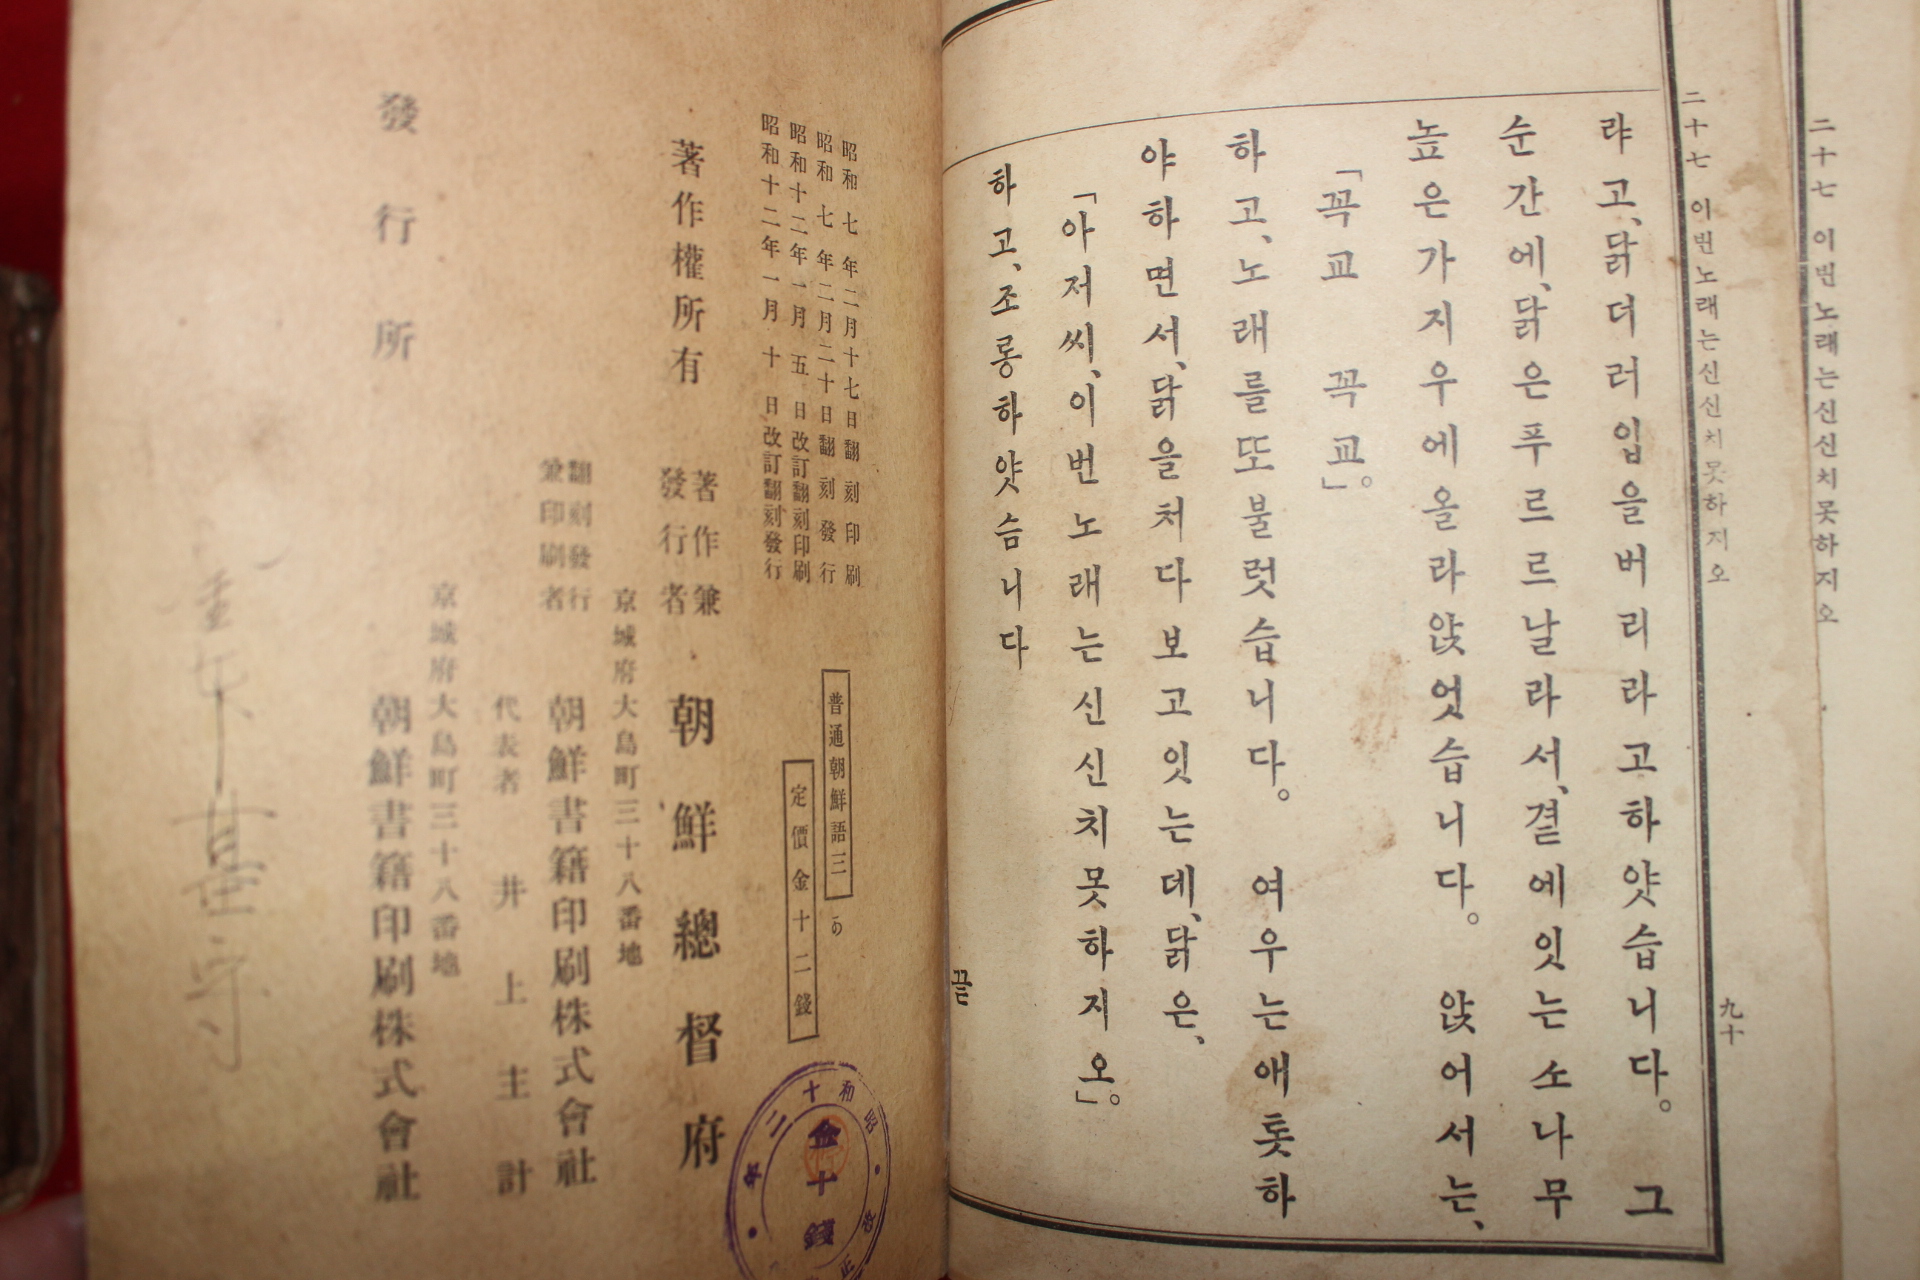 二十七 이번노래는신신치못하지오
二十七 이번노래는신신치못하지오
九十
랴고、닭더러입을버리라고하얏습니다。 그
순간에、닭은푸르르날라서、곁에잇는소나무
높은가지우에올라앉엇습니다。 앉어서는、
「꼭교 꼭교」。
하고、노래를또불럿습니다。 여우는애톳하
야하면서、닭을처다보고잇는데、닭은、
「아저씨、이번노래는신신치못하지오」。
하고、조롱하얏슴니다
끝
昭和七年二月十七日翻刻印刷
昭和七年二月二十日翻刻發行
昭和十二年一月五日改訂翻刻印刷
昭和十二年一月十日改訂翻刻發行
普通朝鮮語三
の
定價金十二錢
著作權所有
著作兼
發行者
朝鮮總督府
京城府大島町三十八番地
翻刻發行
兼印刷者
朝鮮書籍印刷株式會社
代表者 井上主計
京城府大島町三十八番地
發行所
朝鮮書籍印刷株式會社
昭和十二年
金十錢